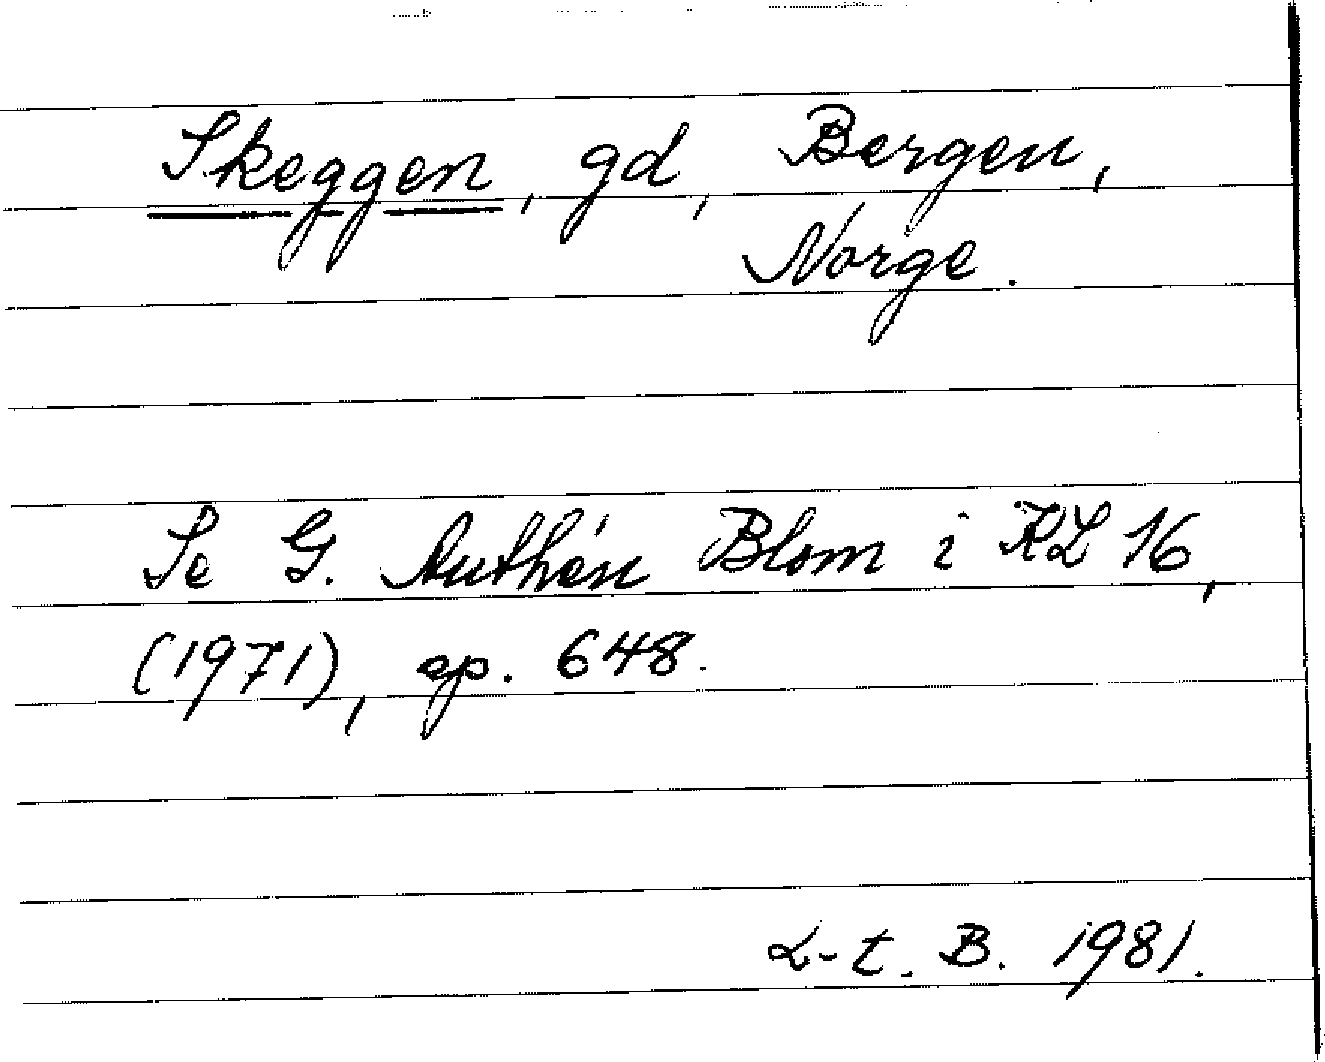 Skeggen, gd, Bergen,
Norge.
Se G. Authén Blom i KL 16,
(1971), sp. 648.
L-t. B. 1981.